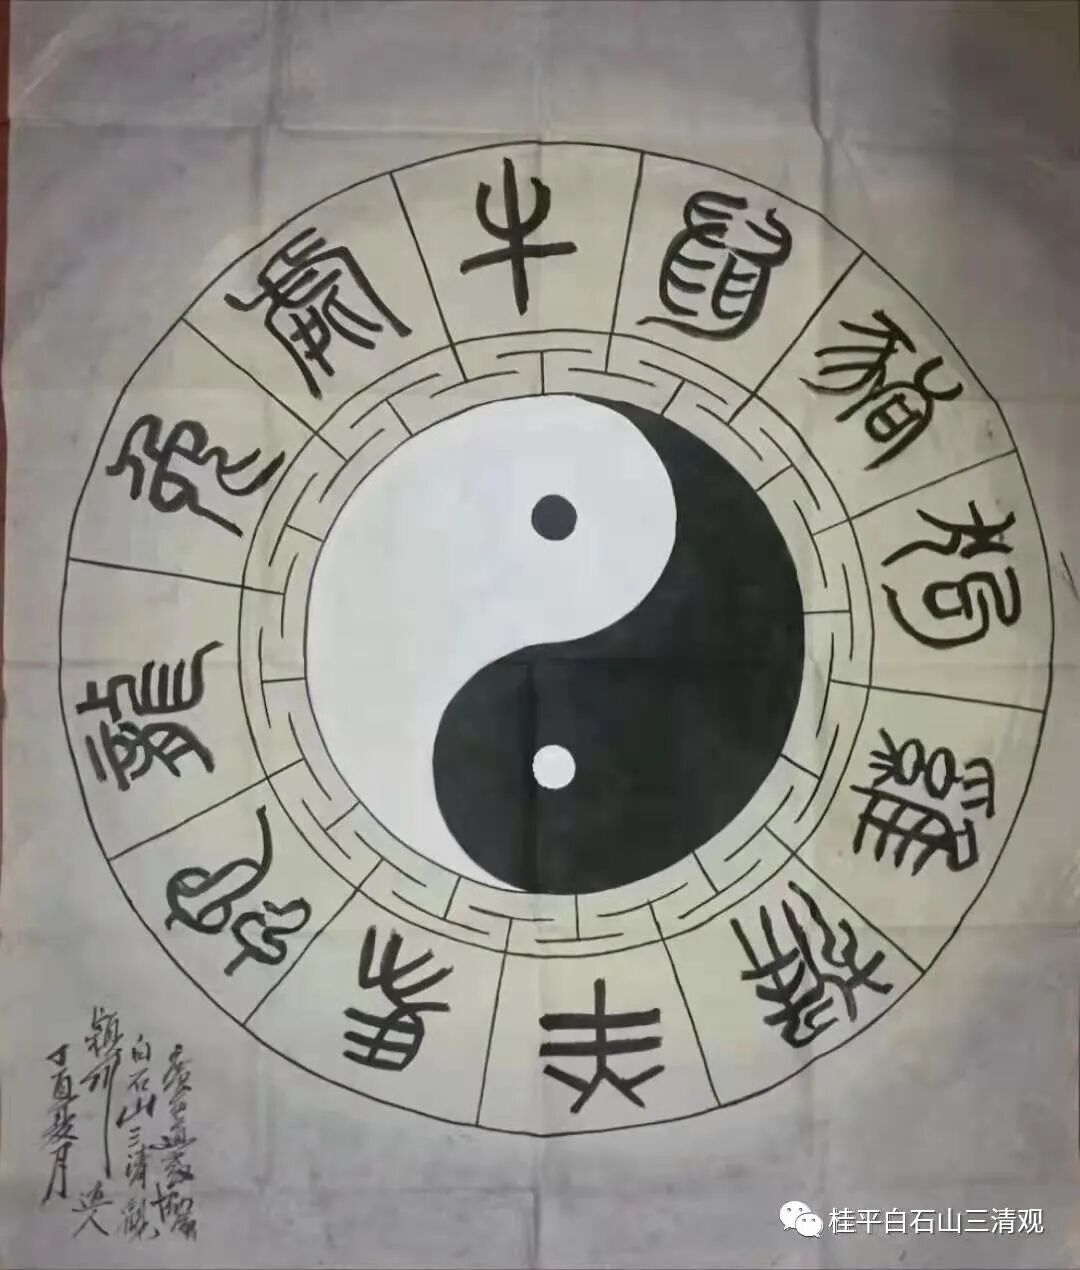 鼠
牛
虎
兔
龍
蛇
馬
羊
猴
雞
狗
豬
道教協會
白石山三清觀
道人
丁酉 月
桂平白石山三清观